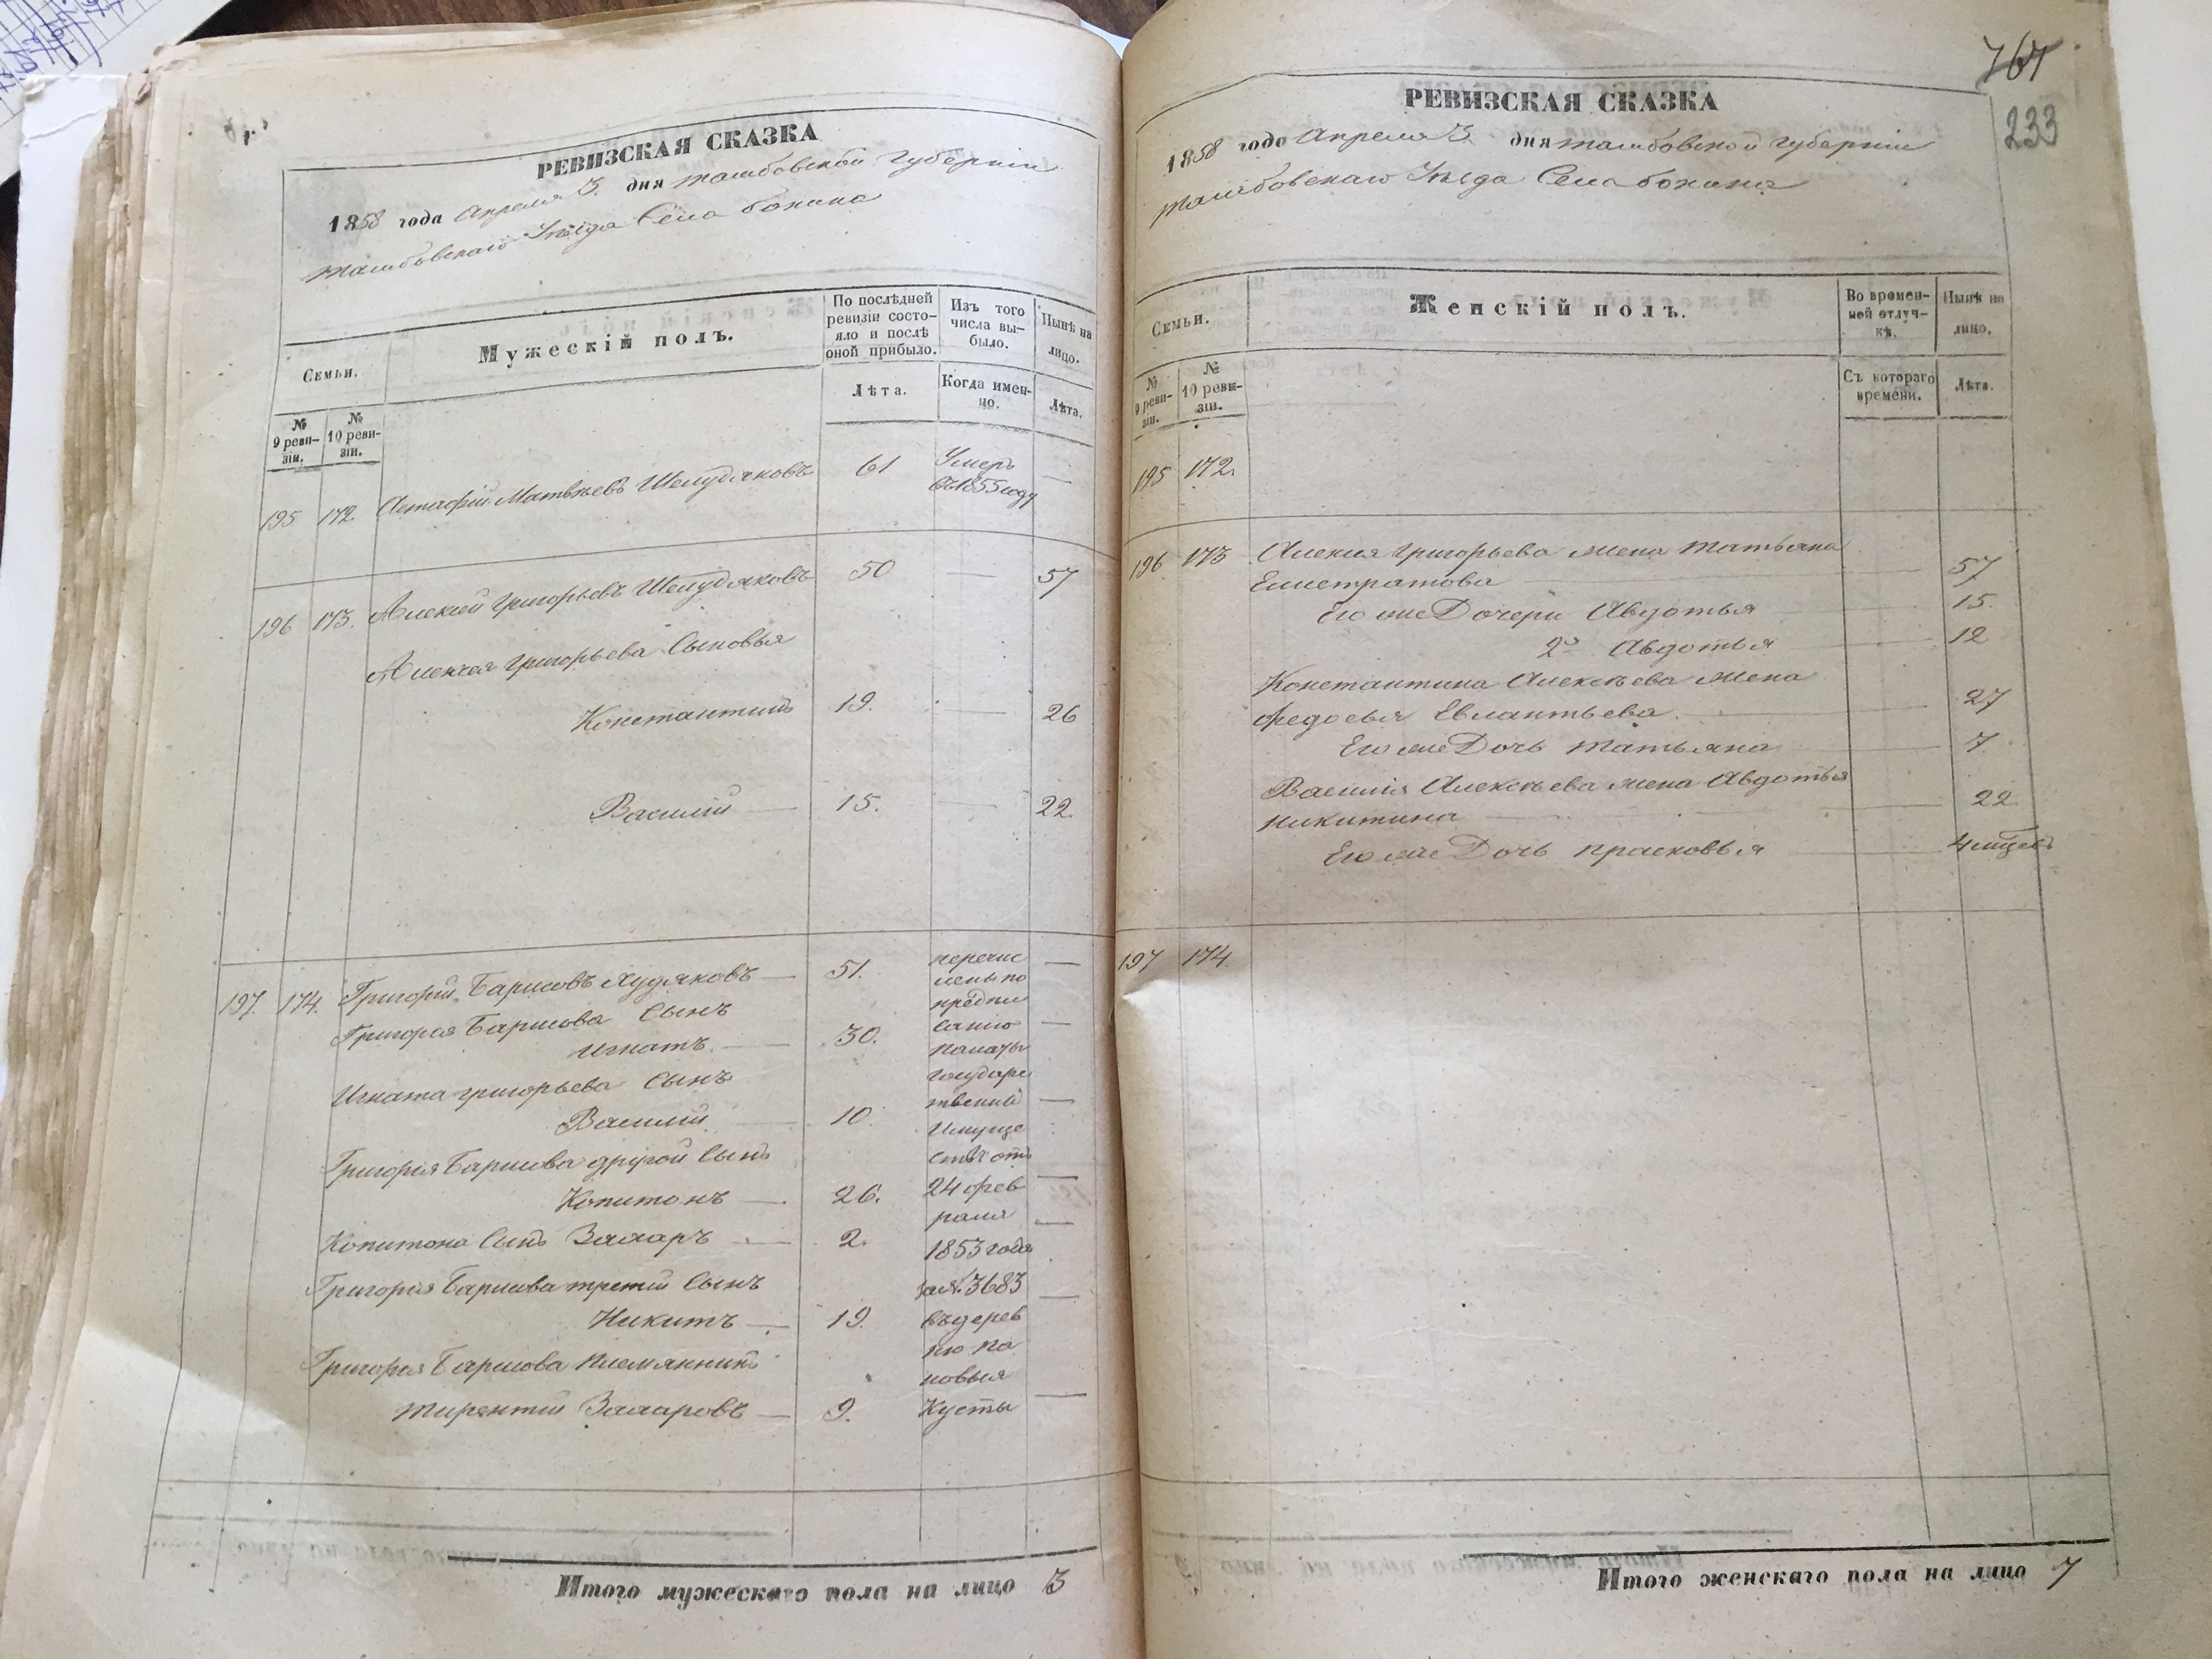 РЕВИЗСКАЯ СКАЗКА
1858 года Апреля 3 дня тамбовской губерніи
тамбовскаго Уѣзда Села бокина
Семьи.
Мужескій полъ.
По послѣдней ревизіи состояло и послѣ оной прибыло.
Изъ того числа выбыло.
Нынѣ на лицо.
№ 9 ревизіи.
№ 10 ревизіи.
Лѣта.
Когда именно.
Лѣта.
195 172 Астафій Матвѣевъ Шелудяковъ 61 Умеръ въ 1855 году —
196 173. Алексей григорьевъ Шелудяковъ 50 — 57
Алексея григорьева Сыновья
Константинъ 19. — 26
Василій — 15. — 22.
197. 174. Григорій Барисовъ Худяковъ — 51.
Григорія Барисова Сынъ
игнатъ — 30.
Игната григорьева Сынъ
Василій 10.
Григорія Барисова другой Сынъ
Копитонъ — 26.
Копитона Сынъ Захаръ — 2.
Григорія Барисова третій Сынъ
Никитъ — 19.
Григорія Барисова племянникъ
тирентій Захаровъ — 9.
перечис
лены по
предпи
санію
палаты
государс
твенный
Имуще
ствъ отъ
24 фев
раля
1853 года
за № 3683
въ дерев
ню па
новыя
Кусты
Итого мужескаго пола на лицо 3
767
233
РЕВИЗСКАЯ СКАЗКА
1858 года Апреля 3 дня тамбовской губерніи
тамбовскаго Уѣзда Села бокина
Семьи.
Женскій полъ.
Во временной отлучкѣ.
Нынѣ на лицо.
№ 9 ревизіи.
№ 10 ревизіи.
Съ котораго времени.
Лѣта.
195 172.
196 173 Алексея григорьева жена татьяна
Елистратова — 57
Его же Дочери Авдотья — 15.
2я Авдотья — 12
Константина Алексѣева жена
федосья Евлантьева — 27
Его же Дочь татьяна — 7.
Василія Алексѣева жена Авдотья
никитина — 22.
Его же Дочь прасковья — 4 мцевъ
197 174.
Итого женскаго пола на лицо 7